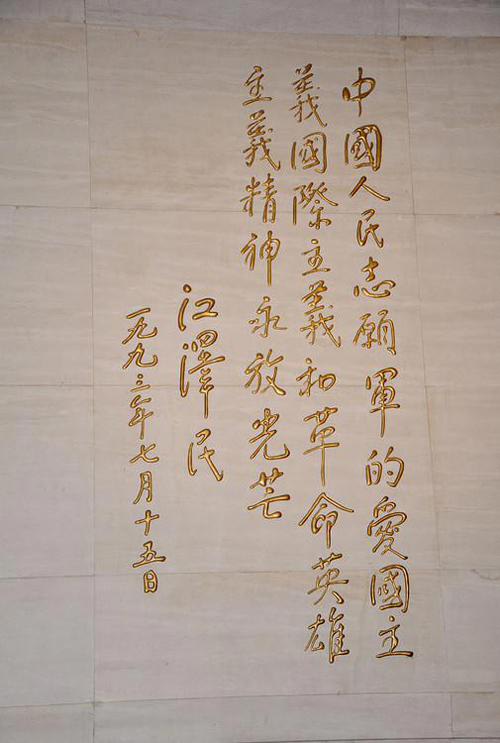 中國人民志願軍的愛國主
義國際主義和革命英雄
主義精神永放光芒
江澤民
一九九三年七月十五日